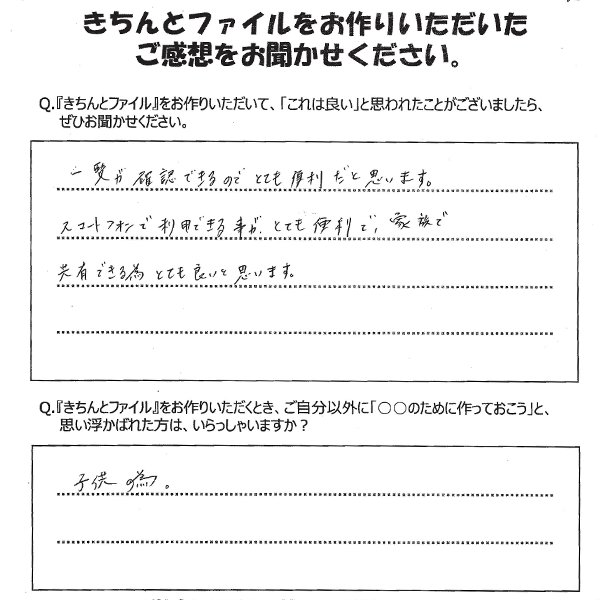 きちんとファイルをお作りいただいた
ご感想をお聞かせください。
Q.『きちんとファイル』をお作りいただいて、「これは良い」と思われたことがございましたら、
ぜひお聞かせください。
一覧が確認できるのでとても便利だと思います。
スマートフォンで利用できる事が、とても便利で、家族で
共有できる為とても良いと思います。
Q.『きちんとファイル』をお作りいただくとき、ご自分以外に「〇〇のために作っておこう」と、
思い浮かばれた方は、いらっしゃいますか？
子供の為。